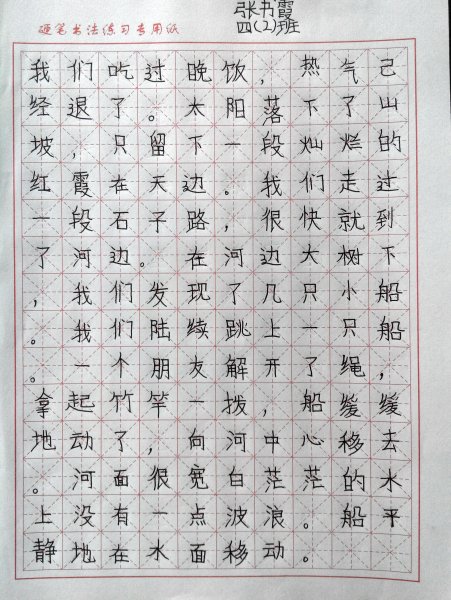 张书霞
硬笔书法练习专用纸
四(2)班
我们吃过晚饭，热气己
经退了。太阳落下了山
坡，只留下一段灿烂的
红霞在天边。我们走过
一段石子路，很快就到
了河边。在河边大树下
，我们发现了几只小船
。我们陆续跳上一只船
。一个朋友解开了绳，
拿起竹竿一拨，船缓缓
地动了，向河中心移去
。河面很宽白茫茫的水
上没有一点波浪。船平
静地在水面移动。